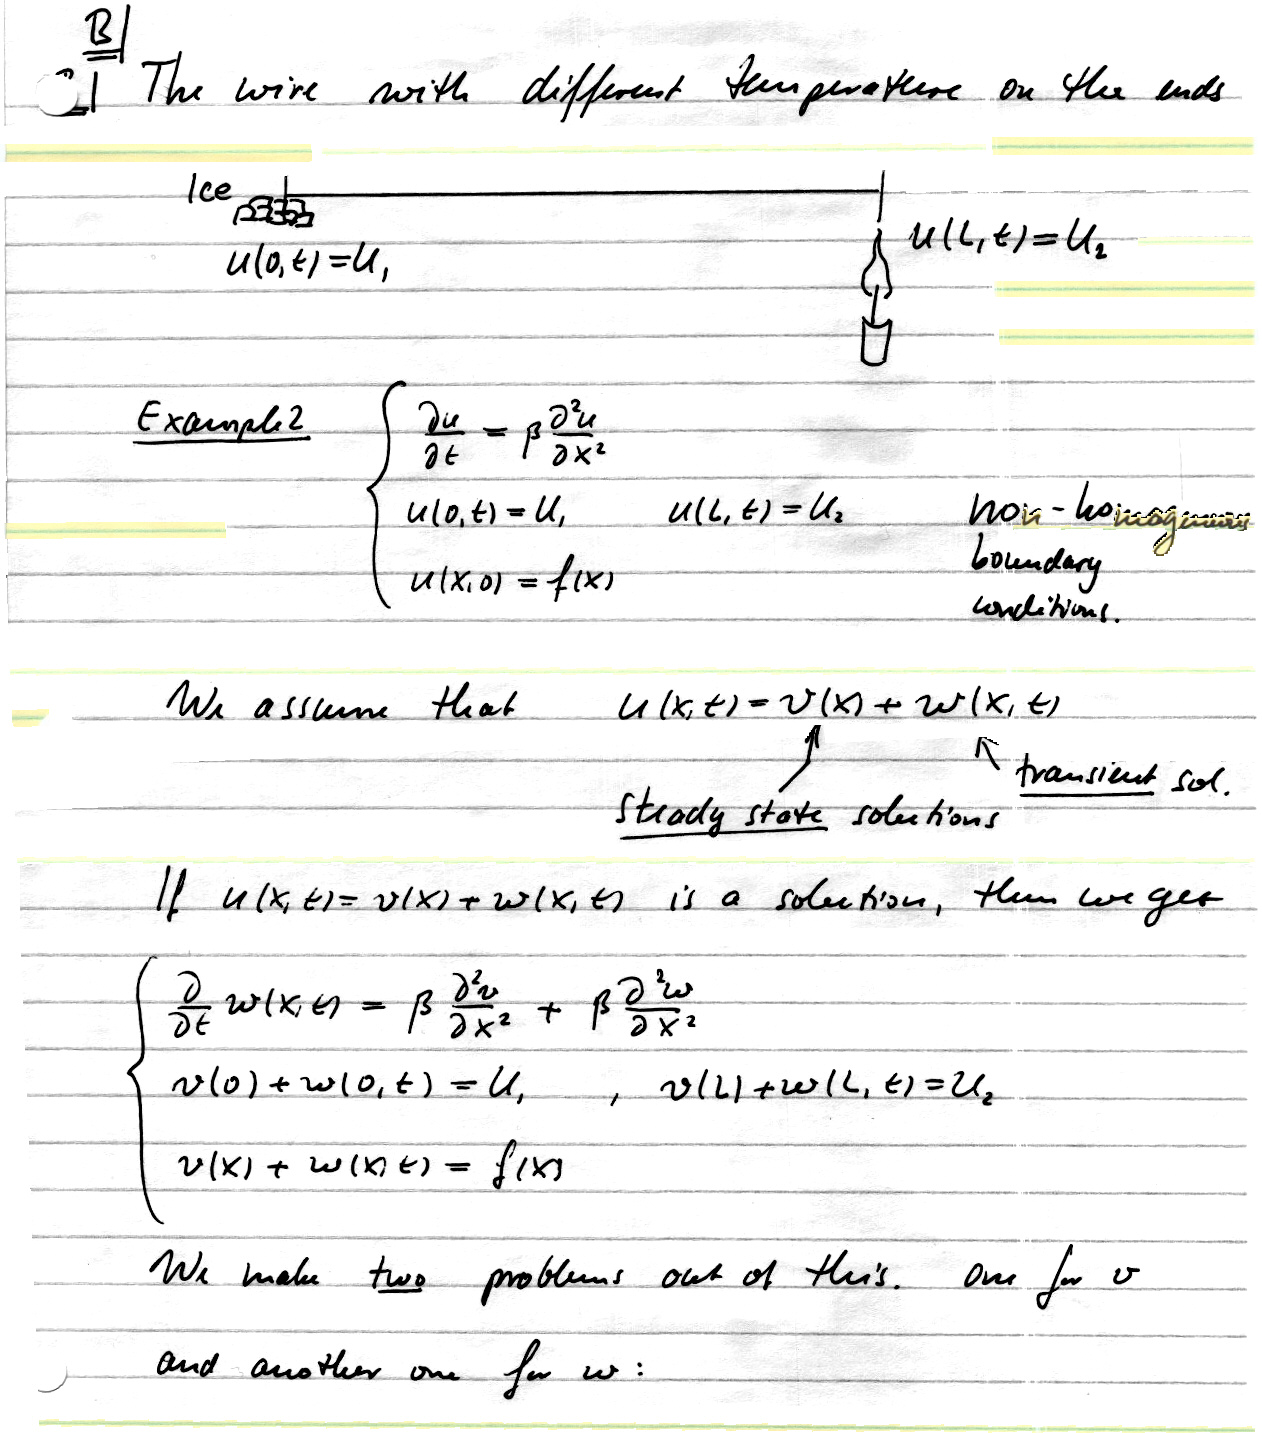 B
2 The wire with different temperature on the ends
Ice
u(0,t)=U₁
u(L,t)=U₂
Example 2
∂u/∂t = β ∂²u/∂x²
u(0,t)=U₁ u(L,t)=U₂ non-homogeneous
boundary
u(x,0) = f(x)
conditions.
We assume that u(x,t)=v(x)+w(x,t)
transient sol.
steady state solutions
If u(x,t)=v(x)+w(x,t) is a solution, then we get
∂/∂t w(x,t) = β ∂²v/∂x² + β ∂²w/∂x²
v(0)+w(0,t)=U₁ , v(L)+w(L,t)=U₂
v(x)+w(x,t)=f(x)
We make two problems out of this. One for v
and another one for w: